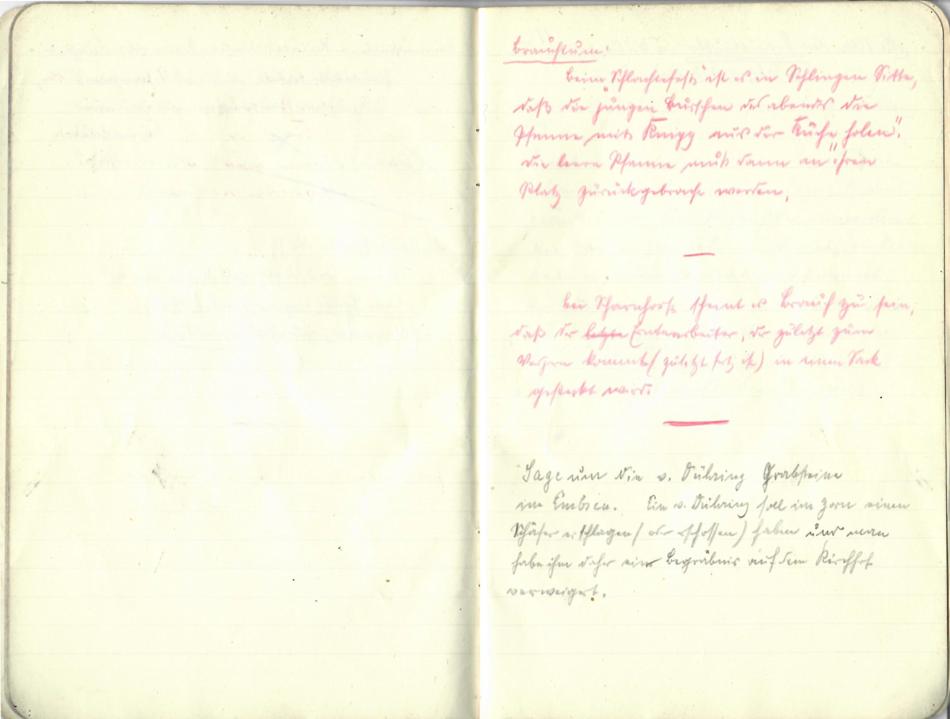 Brauchtum:
Beim "Schlachtefest" ist es in Schlingen Sitte,
daß die jungen Burschen des abends die
Pfanne mit Knipp aus der Küche "holen".
Die leere Pfanne muß dann an ihren
Platz zurückgebracht werden.
Bei Scharnhorst scheint es Brauch zu sein,
daß der letzte Erntearbeiter, der zuletzt zum
Vespern kommt (zuletzt fertig ist) in einen Sack
gesteckt wird.
Sage um die v. Düring Grabsteine
im Embsen. Ein v. Düring soll im Zorn einen
Schäfer erschlagen (oder erschossen) haben und man
habe ihm daher ein Begräbnis auf dem Kirchhof
verweigert.